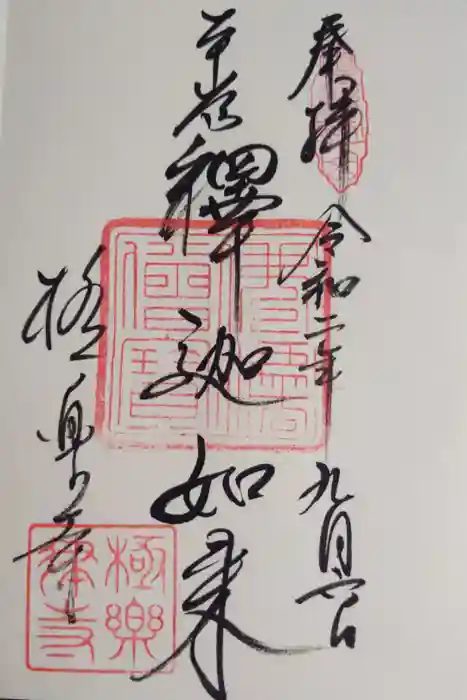 奉拝
令和二年
九月六日
本尊
釋迦如来
極楽寺
極樂
律寺